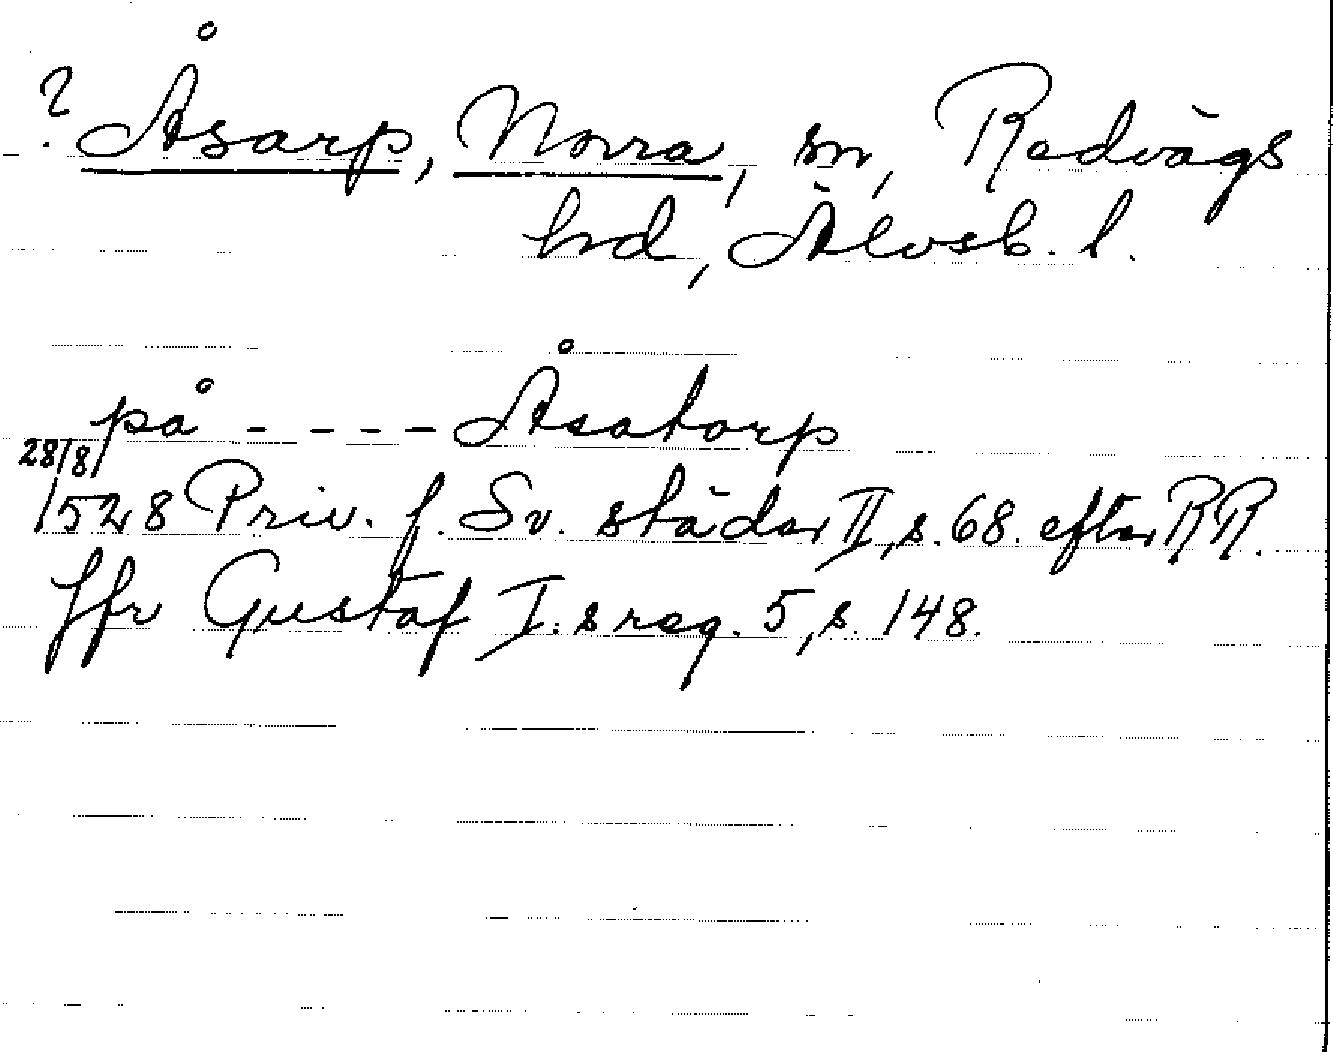 ? Åsarp, Norra, sn, Redvägs
hd, Älvsb. l.
på - - - - Åsatorp
28/8 1528 Priv. f. Sv. städer II, s. 68. efter RR.
Jfr Gustaf I:s reg. 5, s. 148.